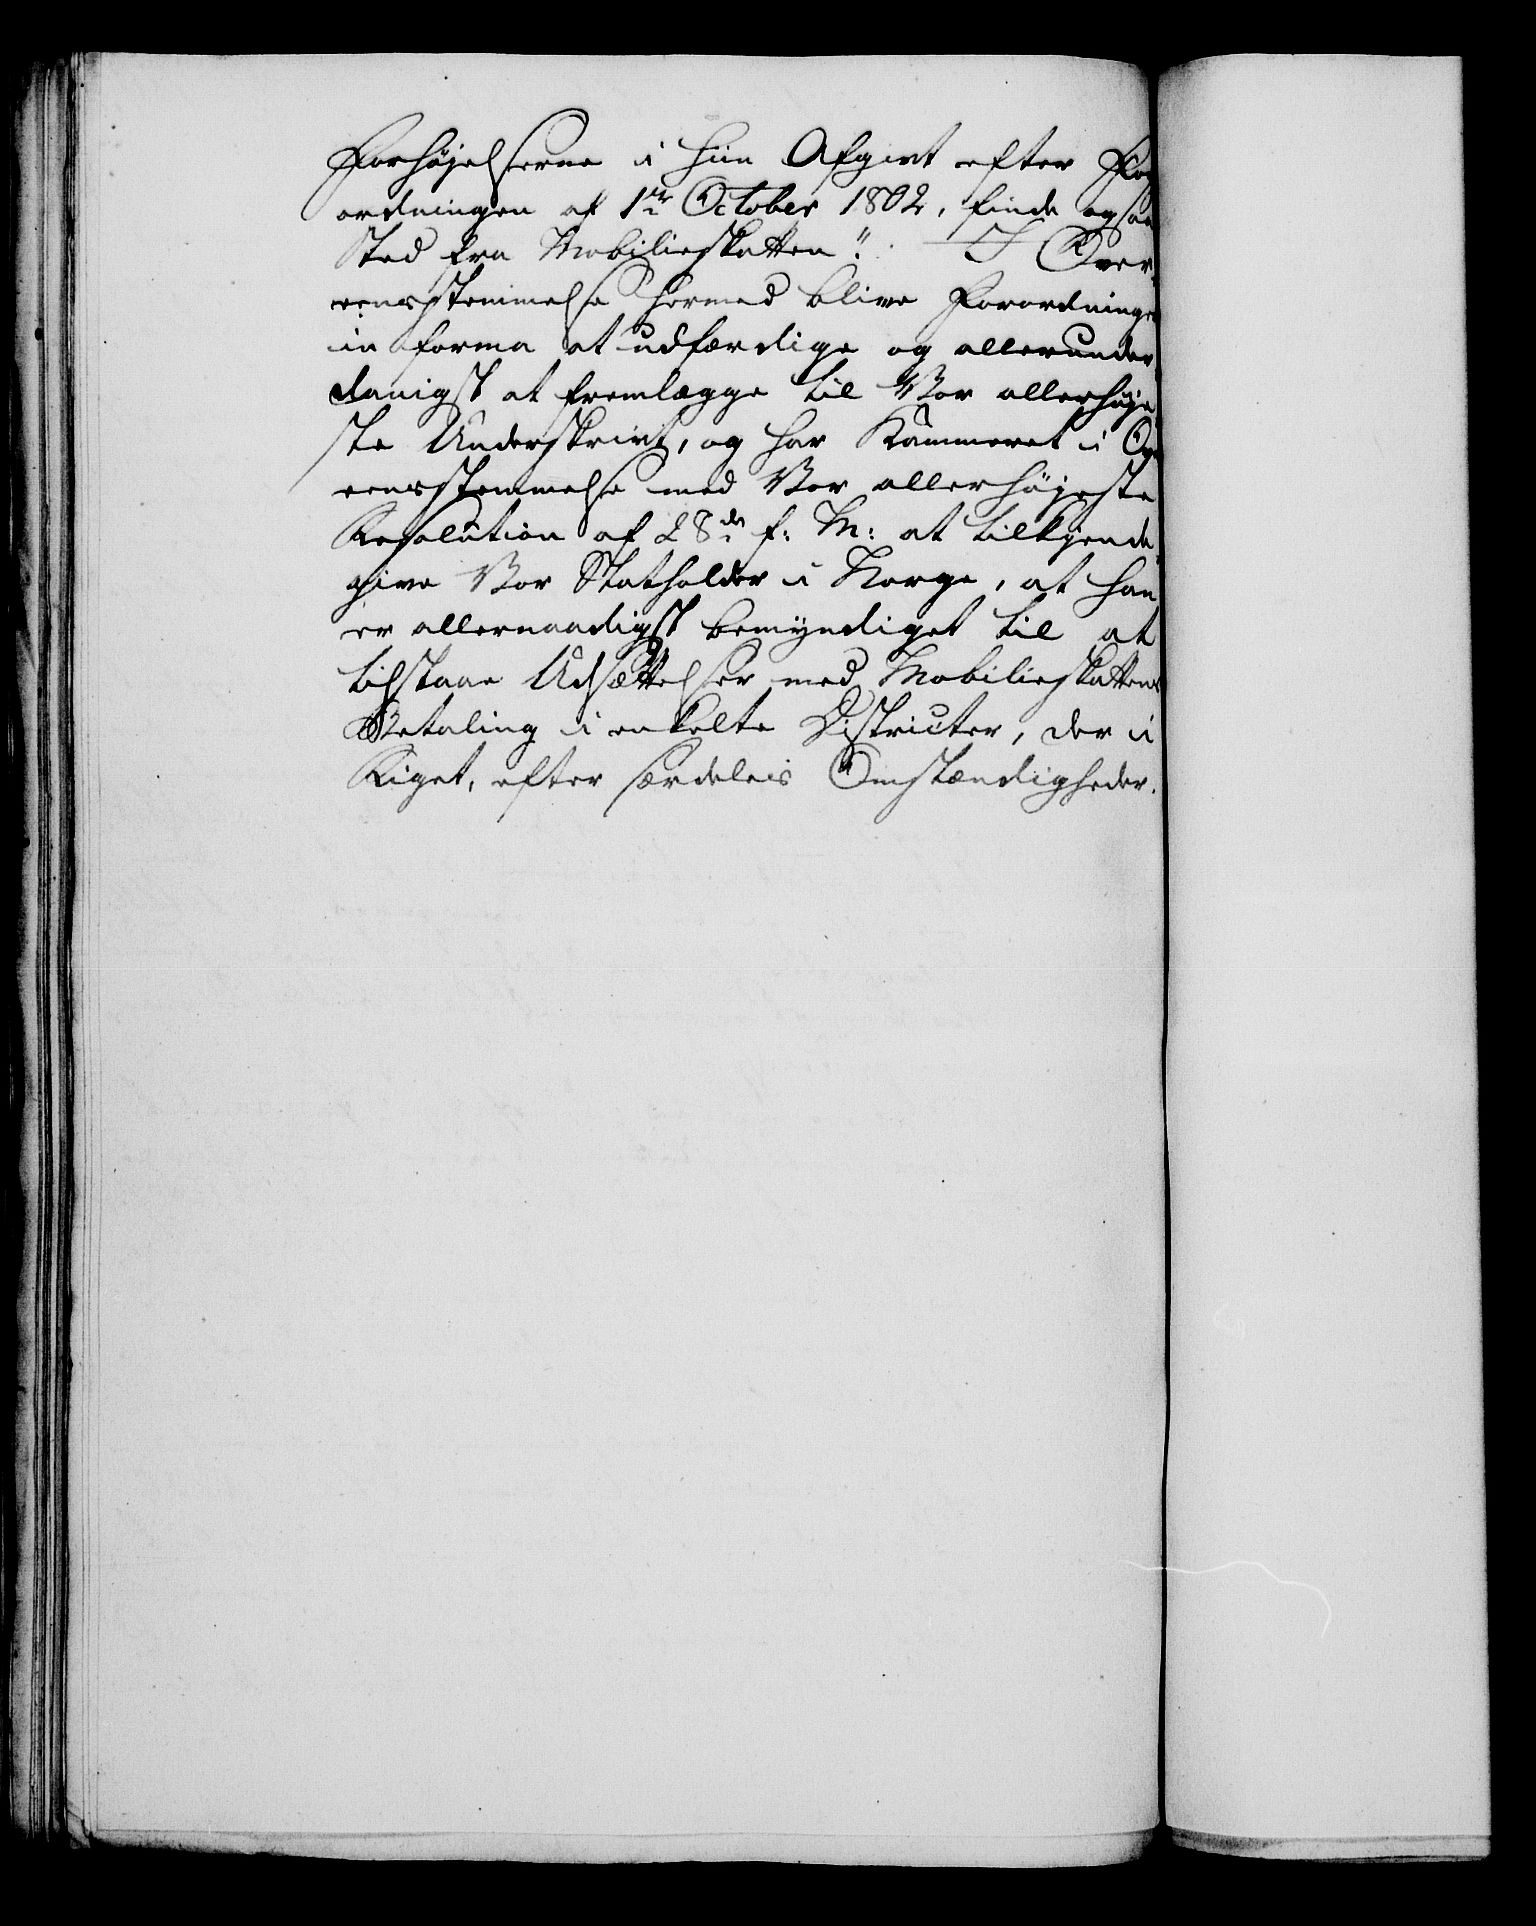 Forhøjelserne i hiin Afgivt efter For
ordningen af 1te October 1802, finde ogsaa
Sted fra Mobilieskatten". I Over-
eensstemmelse hermed blive Forordningen
in forma at udfærdige og allerunder
danigst at fremlægge til Vor allerhøje
ste Underskrivt, og har Kammeret i Ove
eensstemmelse med Vor allerhøjeste
Resolution af 28de f: M: at tilkjende-
give Vor Statholder i Norge, at han
er allernaadigst bemyndiget til at
tilstaae Udsættelser med Mobilieskattens
Betaling i enkelte Districter, der i
Riget, efter særdeles Omstændigheder.